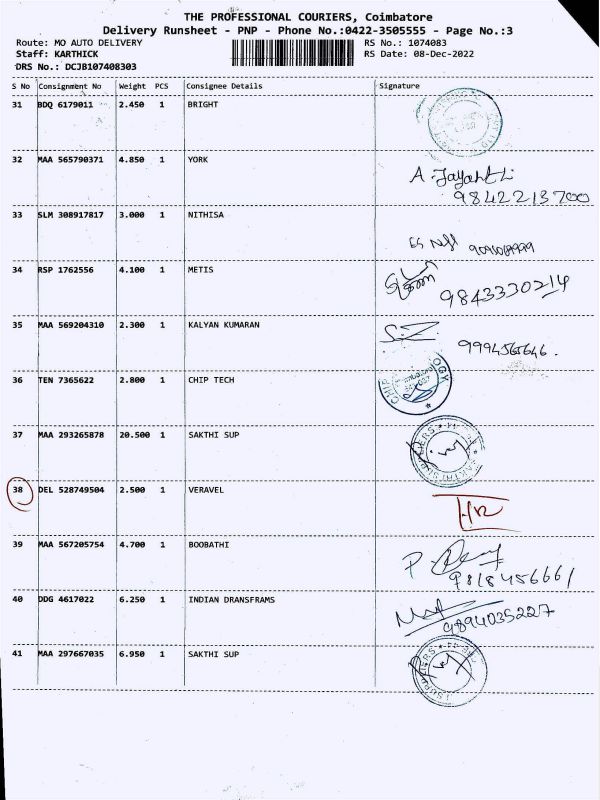 THE PROFESSIONAL COURIERS, Coimbatore
Delivery Runsheet - PNP - Phone No.:0422-3505555 - Page No.:3
Route: MO AUTO DELIVERY RS No.: 1074083
Staff: KARTHICK RS Date: 08-Dec-2022
DRS No.: DCJB107408303
S No Consignment No Weight PCS Consignee Details Signature
31 BDQ 6179011 2.450 1 BRIGHT
32 MAA 565790371 4.850 1 YORK
A. Jayanthi
9842213700
33 SLM 308917817 3.000 1 NITHISA
34 RSP 1762556 4.100 1 METIS
9843330214
35 MAA 569204310 2.300 1 KALYAN KUMARAN
S.Z.
36 TEN 7365622 2.800 1 CHIP TECH
37 MAA 293265878 20.500 1 SAKTHI SUP
SAKTHI SUPPLIERS
38 DEL 528749504 2.500 1 VERAVEL
39 MAA 567205754 4.700 1 BOOBATHI
9818456661
40 DDG 4617022 6.250 1 INDIAN DRANSFRAMS
9894035227
41 MAA 297667035 6.950 1 SAKTHI SUP